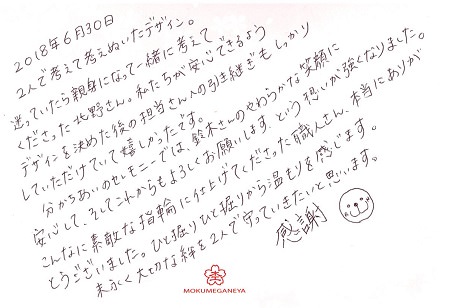 2018年6月30日
2人で考えて考えぬいたデザイン。
迷っていたら親身になって一緒に考えて
くださった北野さん。私たちが安心できるよう
デザインを決めた後の担当さんへの引き継ぎもしっかり
していただけていて嬉しかったです。
分かちあいのセレモニーでは、鈴木さんのやわらかな笑顔に
安心して、そしてこれからもよろしくお願いします、という想いが強くなりました。
こんなに素敵な指輪に仕上げてくださった職人さん、本当にありが
とうございました。ひと掘りひと掘りから温もりを感じます。
末永く大切な絆を2人で守っていきたいと思います。
感謝
MOKUMEGANEYA